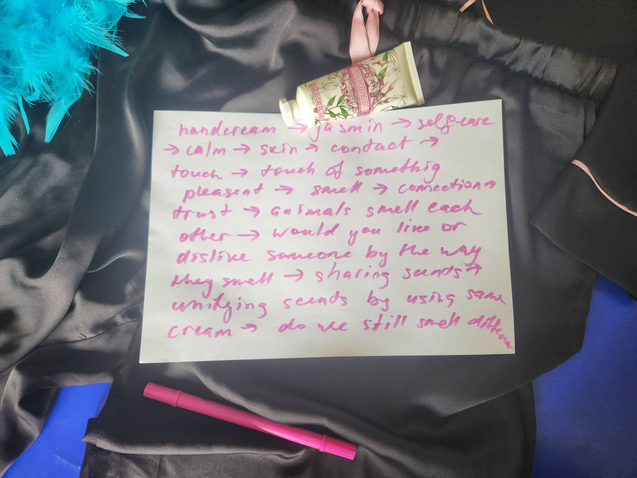 handcream → jasmin → selfcare
→ calm → skin → contact →
touch → touch of somethig
pleasent → smell → connection →
trust → animals smell each
other → would you like or
dislike someone by the way
they smell → sharing scents →
unifying scents by using same
cream → do we still smell different